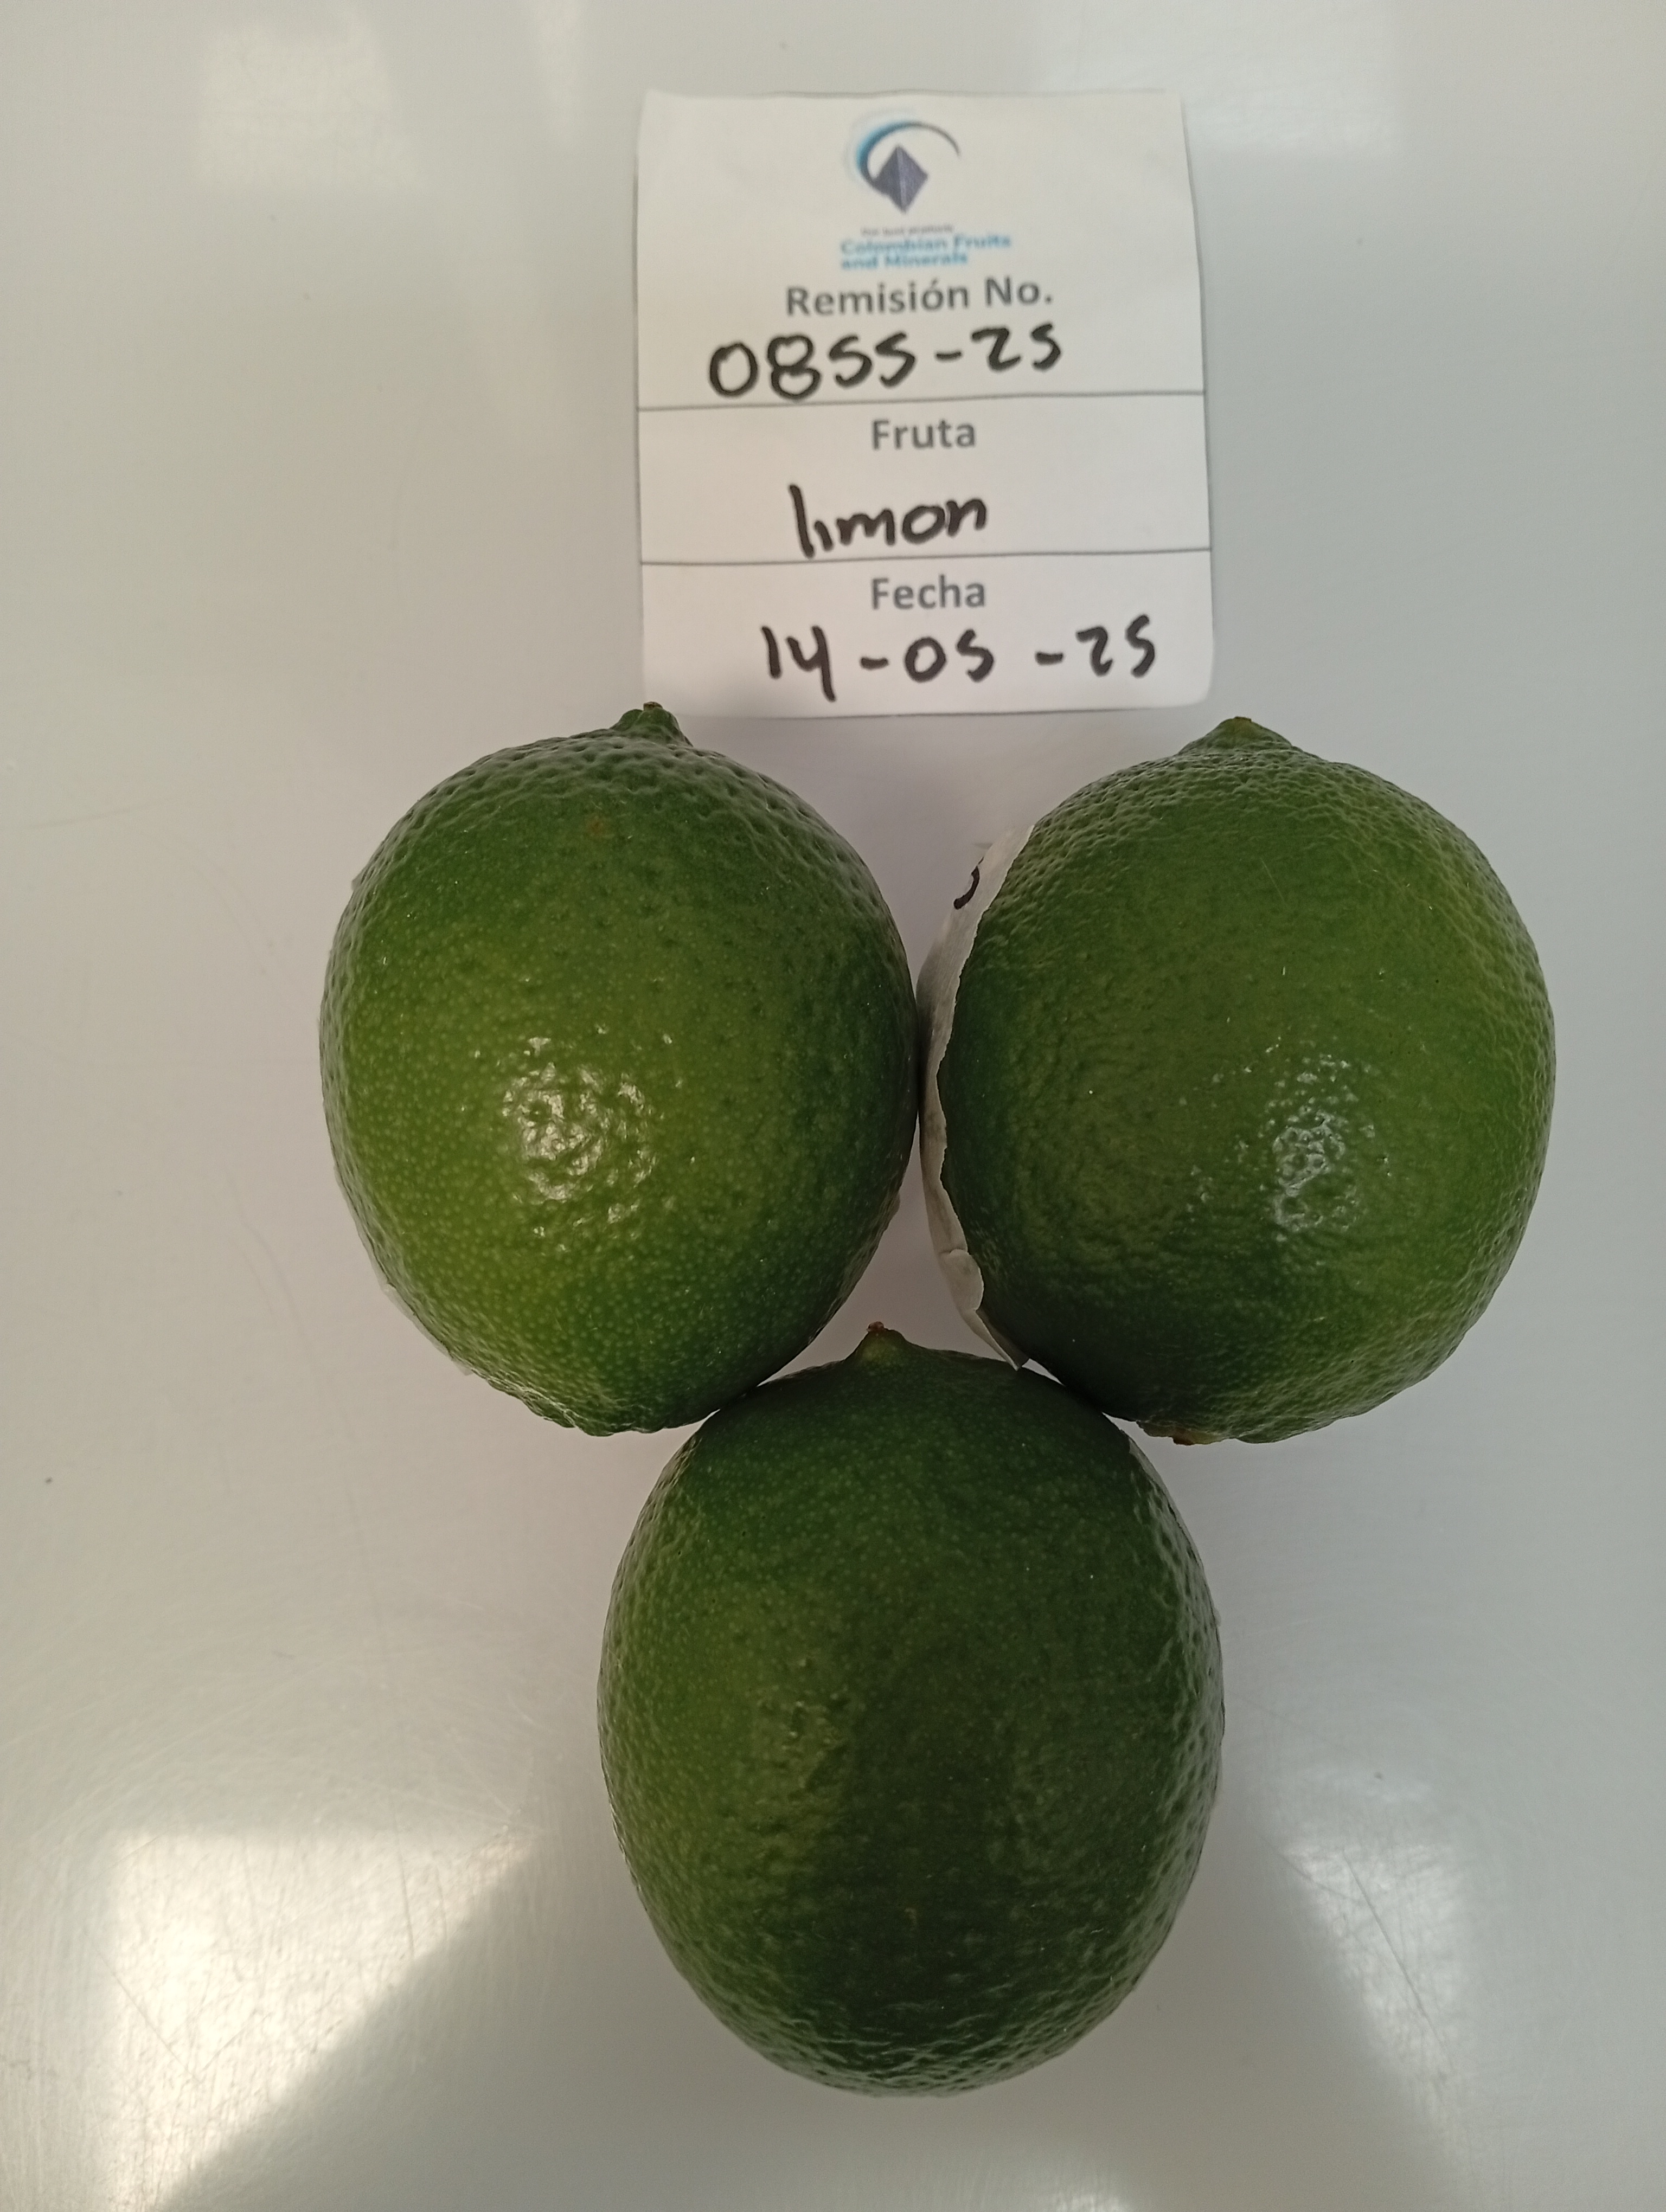 Colombian Fruits
and Minerals
Remisión No.
0855-25
Fruta
limon
Fecha
14-05-25